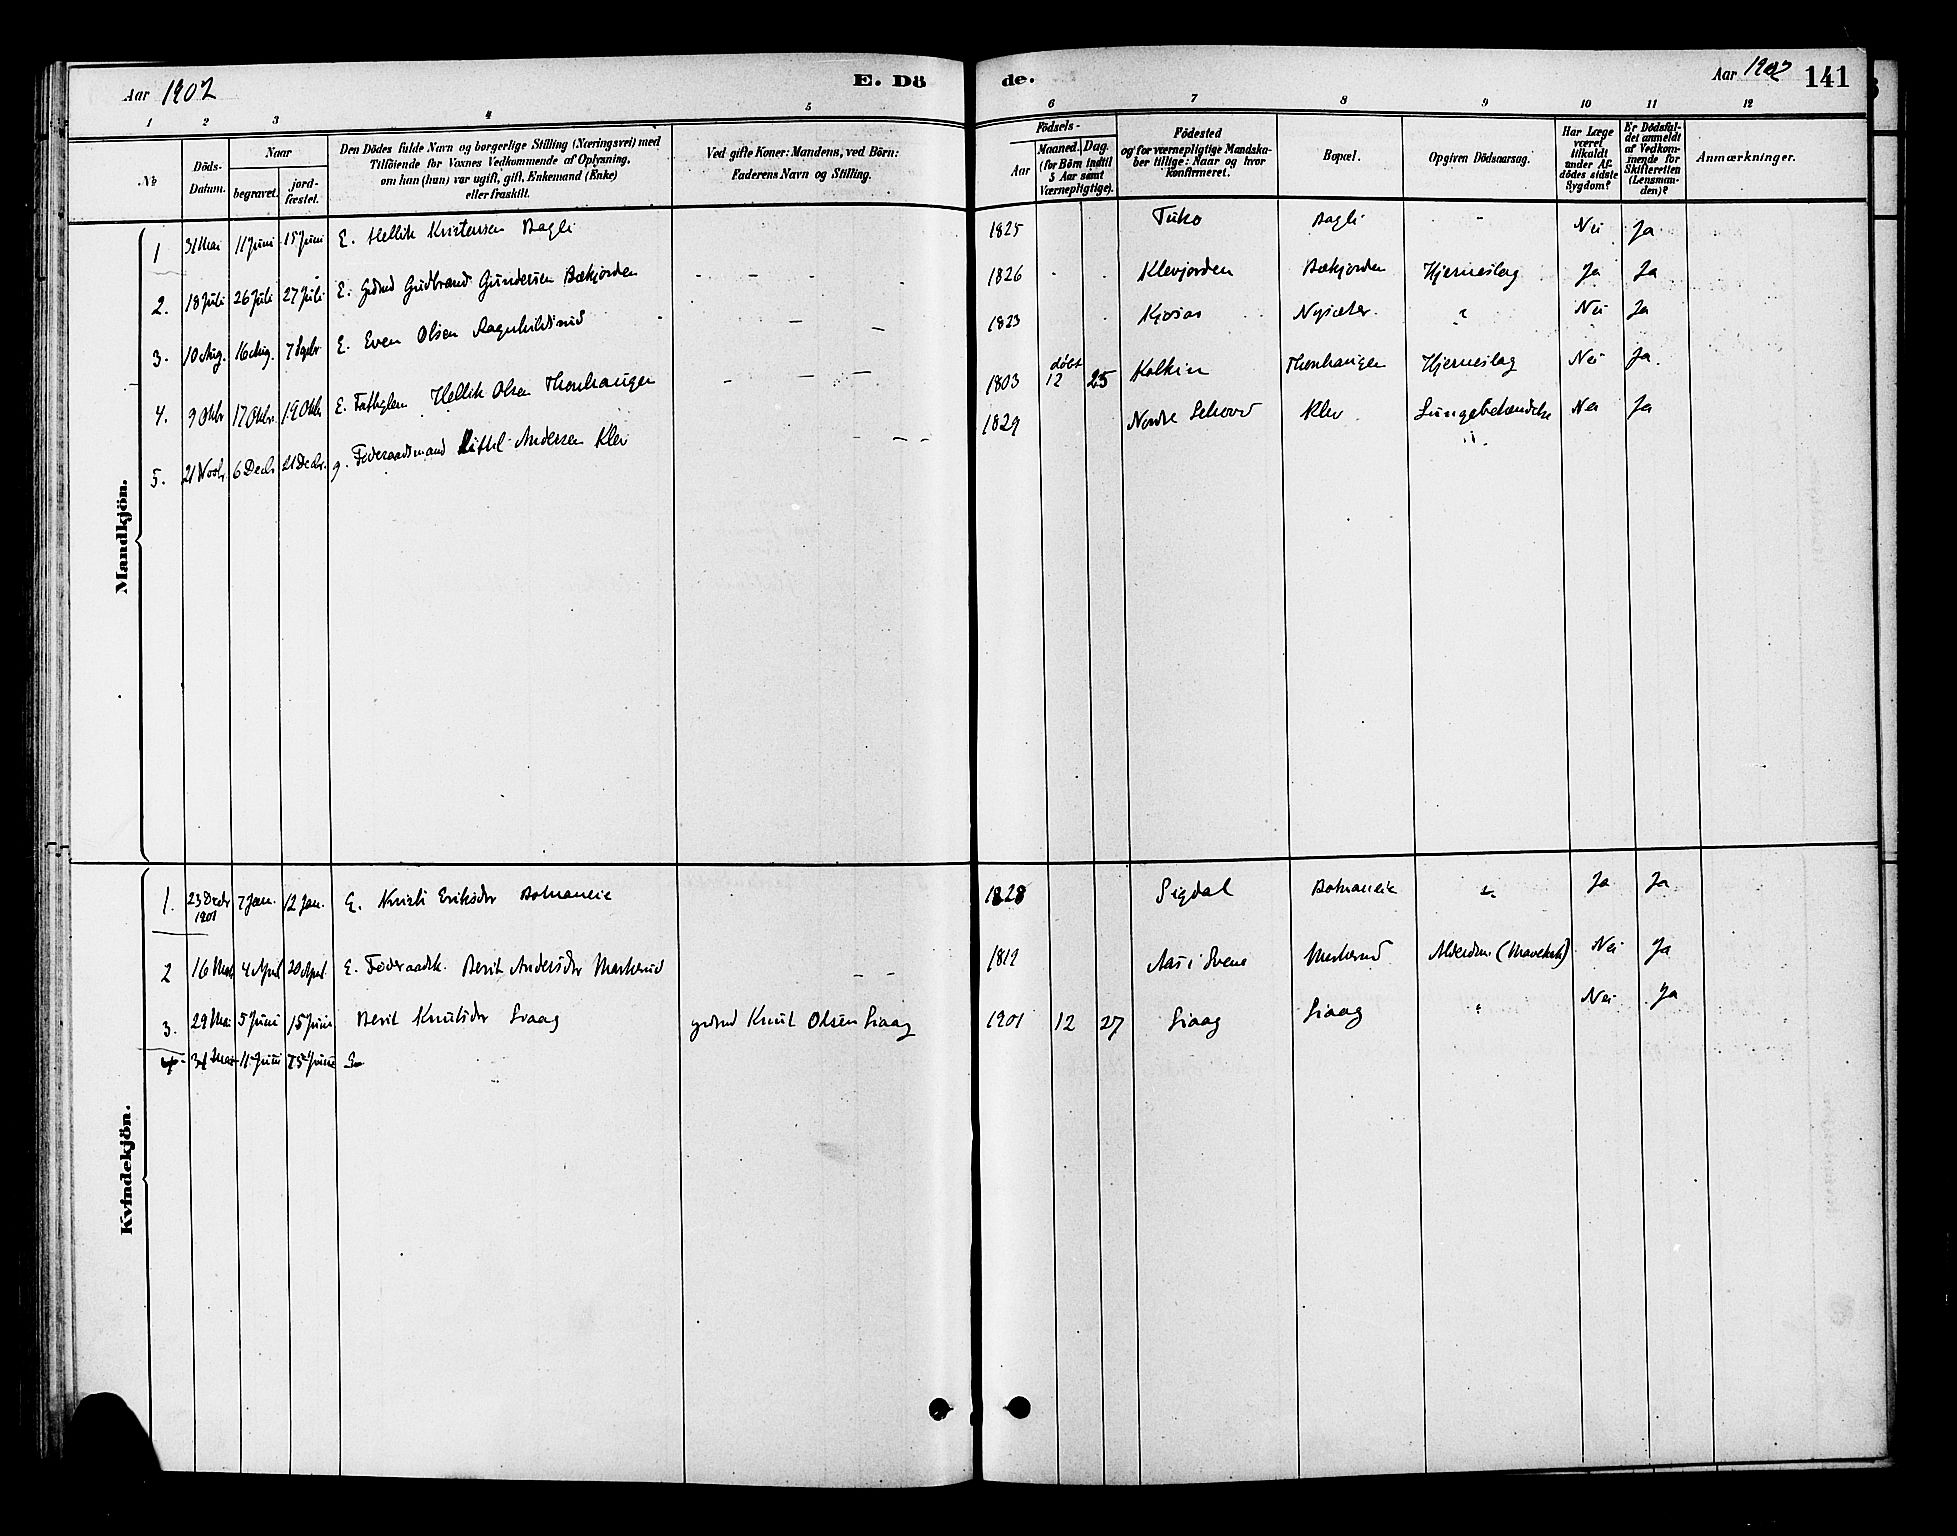 Aar 1902
E. Dö
de.
Aar 1902
141
1 2 3 4 5 6 7 8 9 10 11 12
No
Döds-Datum.
Naar
begravet.
jord-fæstet.
Den Dödes fulde Navn og borgerlige Stilling (Næringsvei) med
Tilföiende for Voxnes Vedkommende af Oplysning,
om han (hun) var ugift, gift, Enkemand (Enke)
eller fraskilt.
Ved gifte Koner: Mandens, ved Börn:
Faderens Navn og Stilling.
Födsels-
Aar
Maaned. Dag.
(for Börn indtil
5 Aar samt
Værnepligtige).
Födested
og for værnepligtige Mandska-
ber tillige: Naar og hvor
Konfirmeret.
Bopæl.
Opgiven Dödsaarsag.
Har Læge
været
tilkaldt
under Af-
dödes sidste
Sygdom?
Er Dödsfal-
det anmeldt
af Vedkom-
mende for
Skifteretten
(Lensman-
den)?
Anmærkninger.
Mandkjön.
1 31 Mai 11 Juni 15 Juni E. Hellik Kristensen Bagli 1825 Bagli " Nei Ja
2. 18 Juli 26 Juli 27 Juli E. Gdmd Gudbrand Gundersen Bækjorden - - - 1826 Klevjorden Bækjorden Hjerneslag Ja Ja
3. 10 Aug. 16 Aug. 7 Septbr E. Even Olsen Ragnhildsrud - - 1823 Nysæter. " Nei Ja
4. 9 Oktbr 17 Oktbr. 19 Oktbr E. Fattiglem Hellik Olsen Thonhaugen - - - 1803 döbt 12 25 Kolkin Thonhaugen Hjerneslag Nei Ja
5. 21 Novbr 6 Decbr 21 Decbr. g. Föderaadsmand Kittil Andersen Klev - - - 1829 Nordre Klev Lungebetændelse Nei Ja
Kvindekjön.
1. 23 Decbr 1901 7 Jan. 12 Jan. E. Kristi Eriksdr 1828 Sigdal " Ja Ja
2 16 Mars 4 April 20 April E. Föderaadsk. Berit Andersdr Markerud - - 1812 Aas i Svene Markerud Alderdom (Mavekræft) Nei Ja
3. 29 Mai 5 Juni 15 Juni Berit Knutsdr Liaag grdmd Knut Olsen Liaag 1901 12 27 Liaag Liaag " Nei Ja
4. 31 Mai 11 Juni 15 Juni E